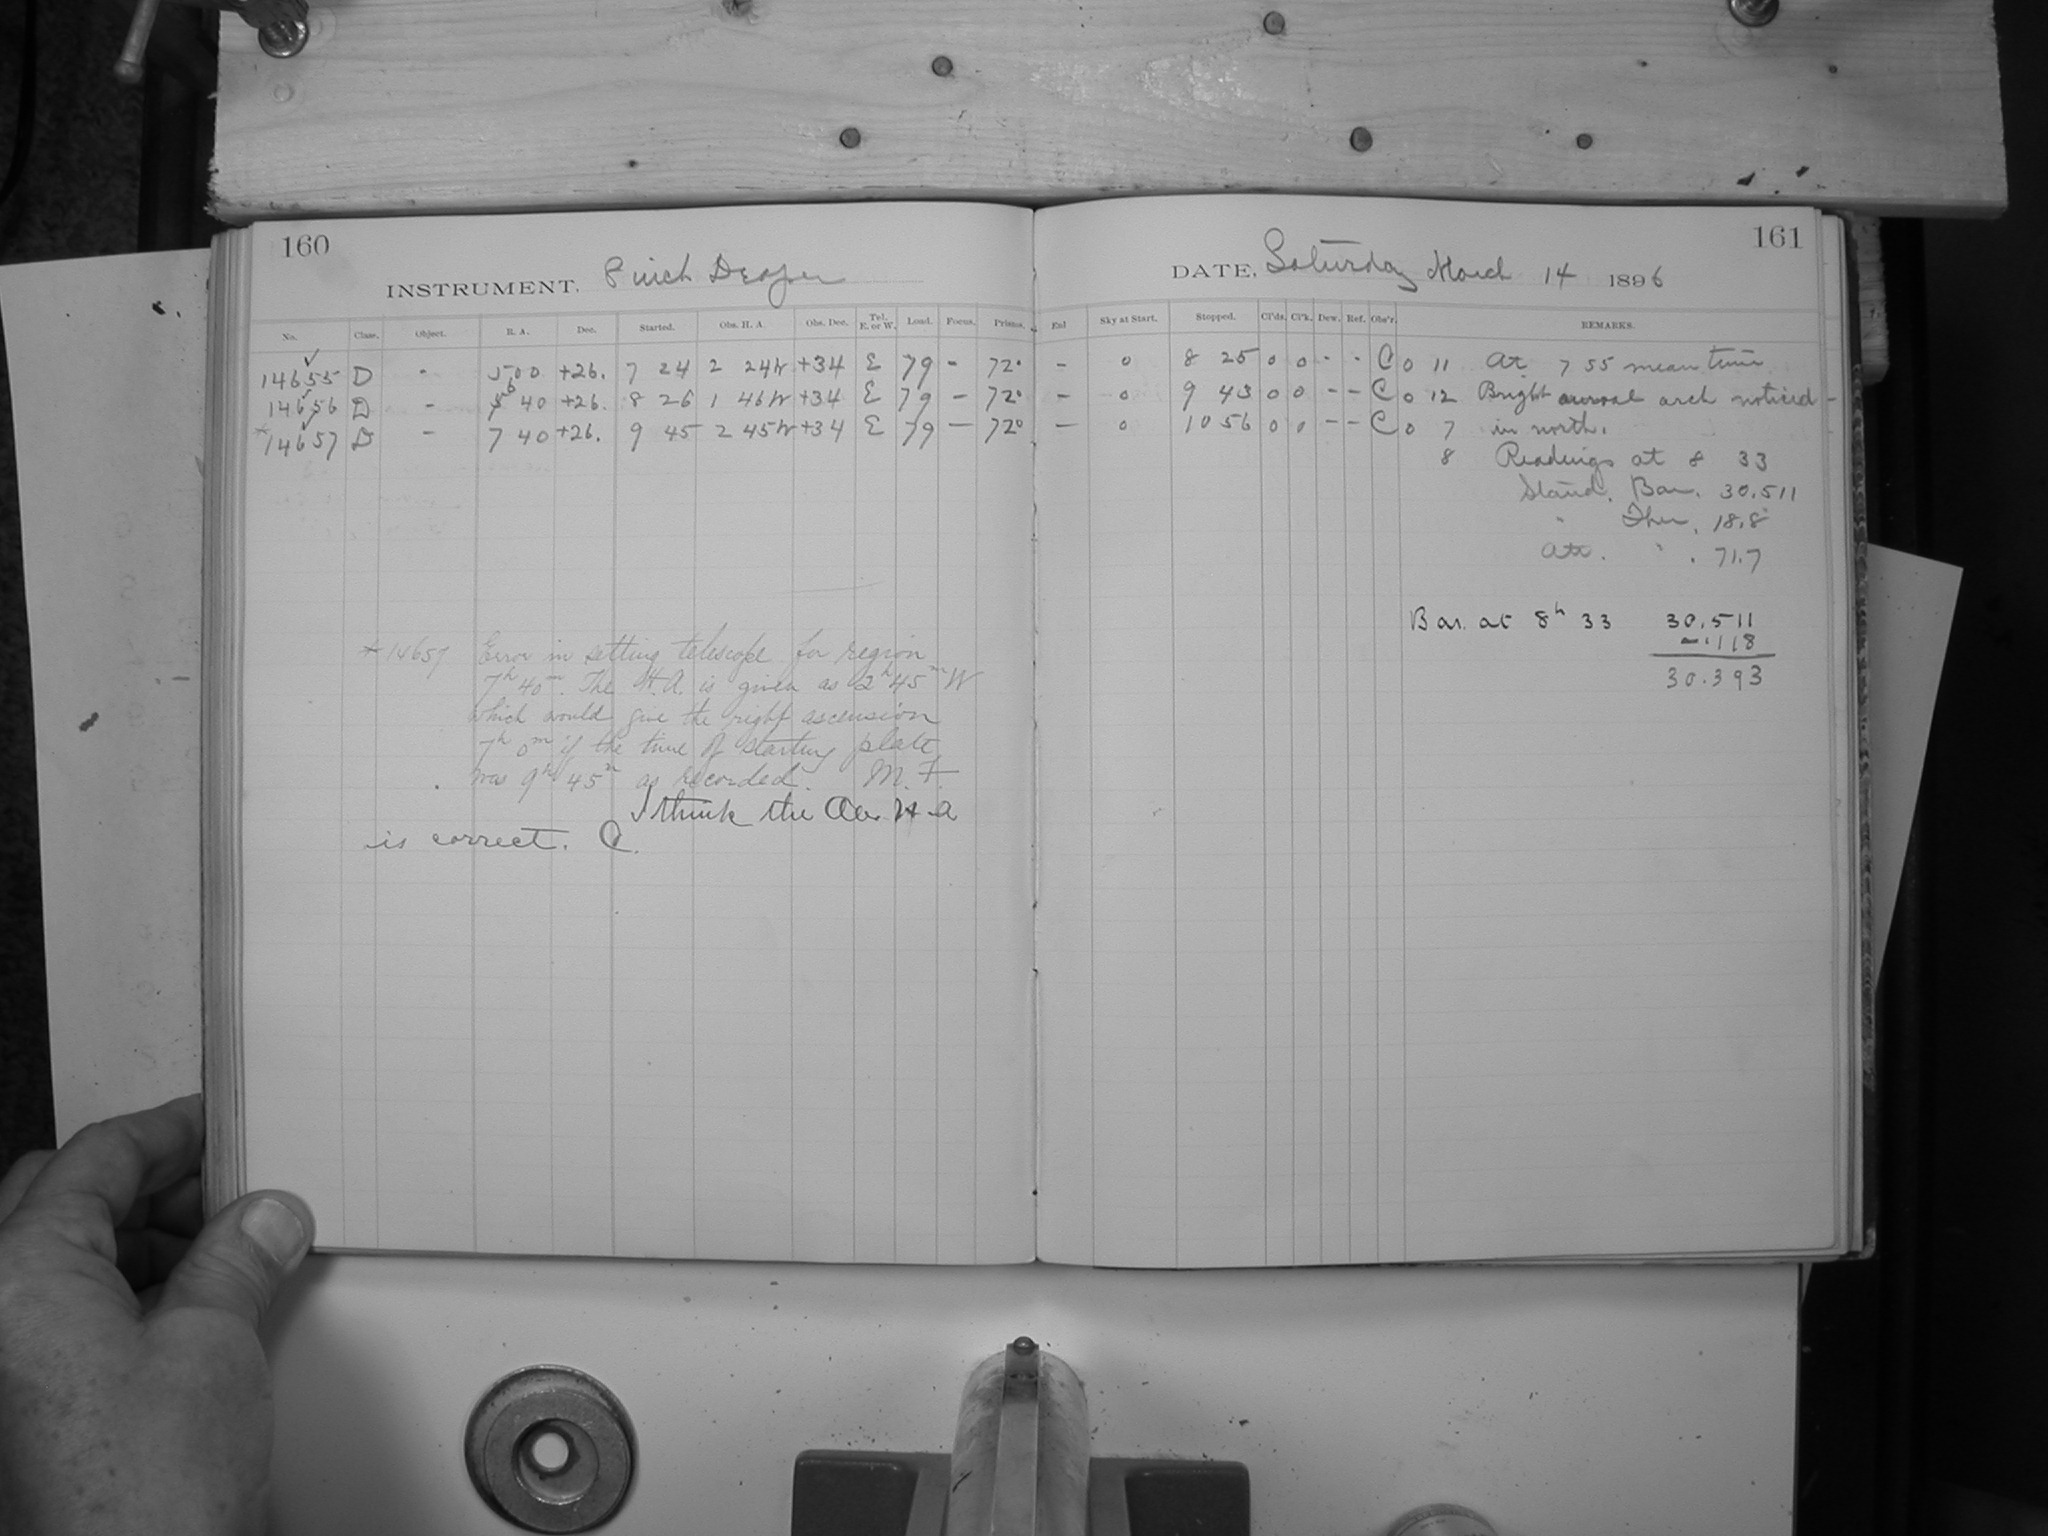 160
INSTRUMENT. 8 inch Draper
No. Class. Object. R. A. Dec. Started. Obs. H. A. Obs. Dec. Tel. E. or W. Load. Focus. Prisms.
14655 D - 5 00 +26. 7 24 2 24W +34 E 79 - 72°
14656 D - 6 40 +26. 8 26 1 46W +34 E 79 - 72°
*14657 D - 7 40 +26. 9 45 2 45W +34 E 79 - 72°
*14657 Error in setting telescope for region
7h 40m. The H.A. is given as 2h 45m W
which would give the right ascension
7h 0m if the time of starting plate
was 9h 45m as recorded. M. F.
I think the H a
is correct. C.
161
DATE, Saturday March 14 1896
Enl Sky at Start. Stopped. Cl'ds. Cl'k. Dew. Ref. Obs'r. REMARKS.
- 0 8 25 0 0 - - C 0 11 At 7 55 mean time
- 0 9 43 0 0 - - C 0 12 Bright auroral arch noticed -
- 0 10 56 0 0 - - C 0 7 in north.
8 Readings at 8 33
Stand. Bar. 30.511
" Ther. 18.8
Att. " . 71.7
Bar. at 8h 33 30.511
-.118
30.393